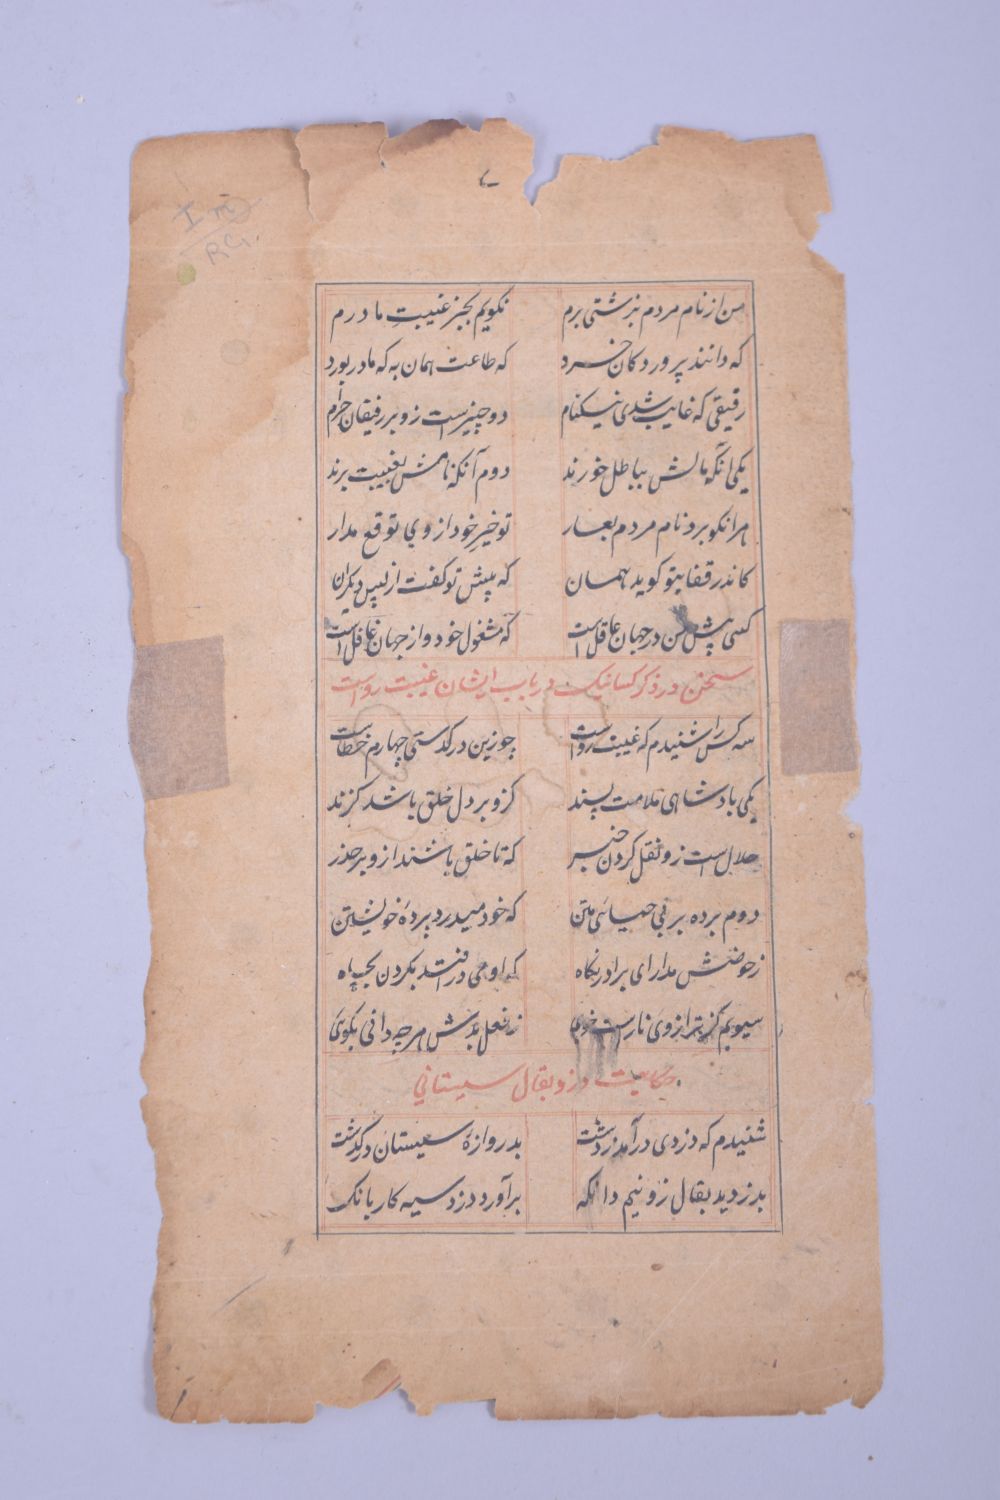 I m
RG
من از نام مردم بزشتی برم نکویم بجز غیبت مادرم
که دانند پروردکان خرد که طاعت همان به که مادر برد
رفیقی که غایب شدی نیکنام دو چیزست ازو بر رفیقان حرام
یکی آنکه مالش بباطل خورند دوم آنکه نامش بغیبت برند
هر انکو برد نام مردم بعار تو خیر خود از وی توقع مدار
کاندر قفا بتو کوید همان که پیش تو کفت از پس دیکران
کسی پیش من در جهان عاقل است که مشغول خود و از جهان غافل است
سخن در ذکر کسانیک در باب ایشان غیبت رواست
سه کس را شنیدم که غیبت رواست چو زین درکذستی چهارم خطاست
یکی بادشاهی ملامت پسند کزو بر دل خلق باشد کزند
حلال است زو نقل کردن خبر که تا خلق باشند ازو بر حذر
دوم برده بر بی حیائی متن که خود میدرد بردۀ خویشتن
ز حوضش مدار ای برادر نکاه که او می درافتد بکردن بچاه
سیوم کژ ترازوی ناراست خوی ز فعل بدش هر چه دانی بکوی
حکایت دزد و بقال سیستانی
شنیدم که دزدی درآمد ز دشت بدروازۀ سیستان درکذشت
بدزدید بقال زو نیم دانکه برآورد دزد سیه کار بانک